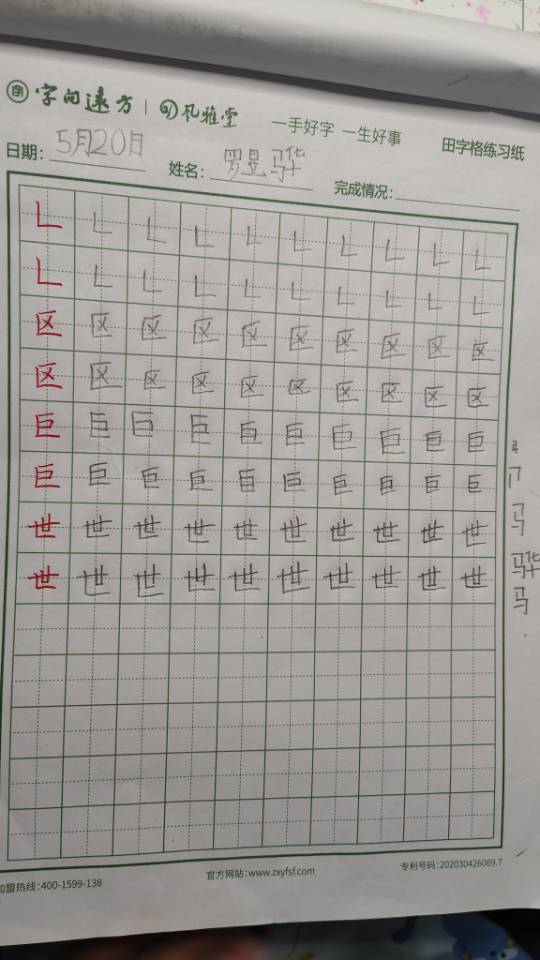 字间远方 | 凡雅堂 一手好字 一生好事 田字格练习纸
日期: 5月20日 姓名: 罗昱骅 完成情况:
𠃊 𠃊 𠃊 𠃊 𠃊 𠃊 𠃊 𠃊 𠃊 𠃊
𠃊 𠃊 𠃊 𠃊 𠃊 𠃊 𠃊 𠃊 𠃊 𠃊
区 区 区 区 区 区 区 区 区 区
区 区 区 区 区 区 区 区 区 区
巨 巨 巨 巨 巨 巨 巨 巨 巨 巨
巨 巨 巨 巨 巨 巨 巨 巨 巨 巨
世 世 世 世 世 世 世 世 世 世
世 世 世 世 世 世 世 世 世 世
马
骅
马
加盟热线:400-1599-138 官方网站:www.zxyfsf.com 专利号码:202030426069.7